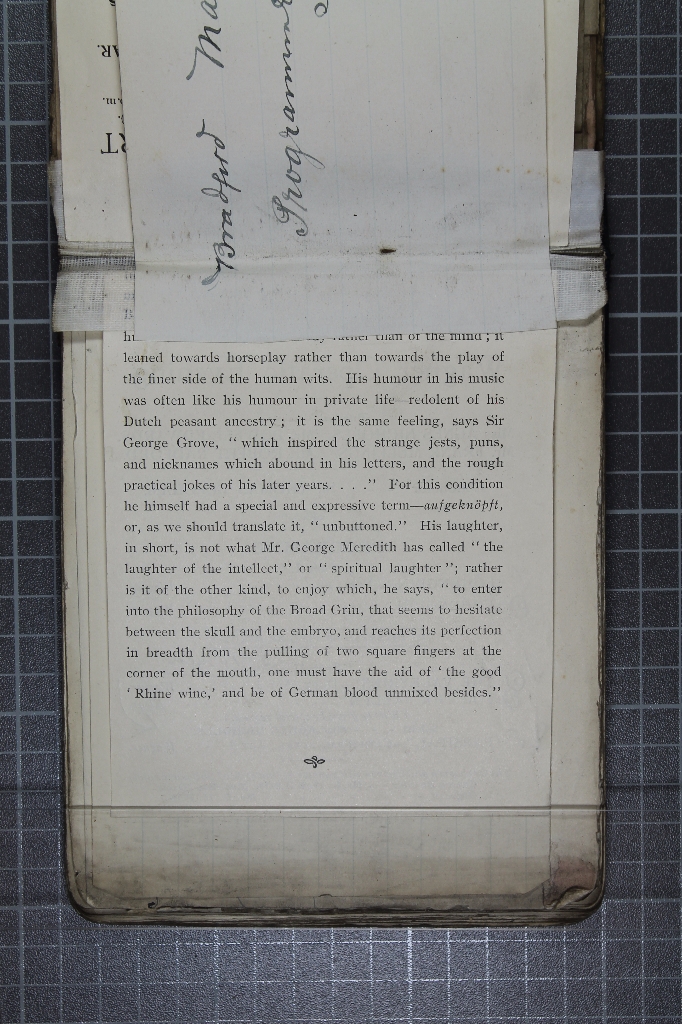 Bradford Ma
Programme
AR.
RT
rather than of the mind; it
leaned towards horseplay rather than towards the play of
the finer side of the human wits. His humour in his music
was often like his humour in private life—redolent of his
Dutch peasant ancestry; it is the same feeling, says Sir
George Grove, “which inspired the strange jests, puns,
and nicknames which abound in his letters, and the rough
practical jokes of his later years. . . .” For this condition
he himself had a special and expressive term—aufgeknöpft,
or, as we should translate it, “unbuttoned.” His laughter,
in short, is not what Mr. George Meredith has called “the
laughter of the intellect,” or “spiritual laughter”; rather
is it of the other kind, to enjoy which, he says, “to enter
into the philosophy of the Broad Grin, that seems to hesitate
between the skull and the embryo, and reaches its perfection
in breadth from the pulling of two square fingers at the
corner of the mouth, one must have the aid of ‘the good
‘Rhine wine,’ and be of German blood unmixed besides.”